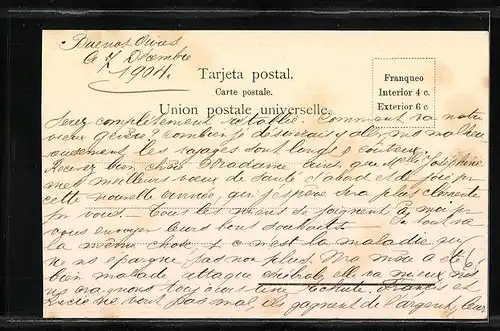 Buenos Aires
le 7 Décembre
1904.
Tarjeta postal.
Carte postale.
Union postale universelle.
Franqueo
Interior 4 c.
Exterior 6 c
Serez complètement rétablie. Comment va notre
vieux Genève? combien je désirerais y aller, mais malheu-
reusement les voyages sont longs & coûteux.
Recevez bien chère Madame ainsi que Mlle Joséphine
mes meilleurs vœux de santé d'abord et de joie pr
cette nouvelle année, qui j'espère sera plus clémente
pr vous. Tous les miens se joignent à moi pr
vous envoyer leurs bons souhaits. Ici tout va
la même chose, & c'est la maladie qui
ne ns épargne pas non plus. Ma mère a été
bien malade attaque cérébrale, elle va mieux, mais
ns craignons toujours une rechute. Francis et
Lucie ne vont pas mal, ils gagnent de l'argent, leur
6